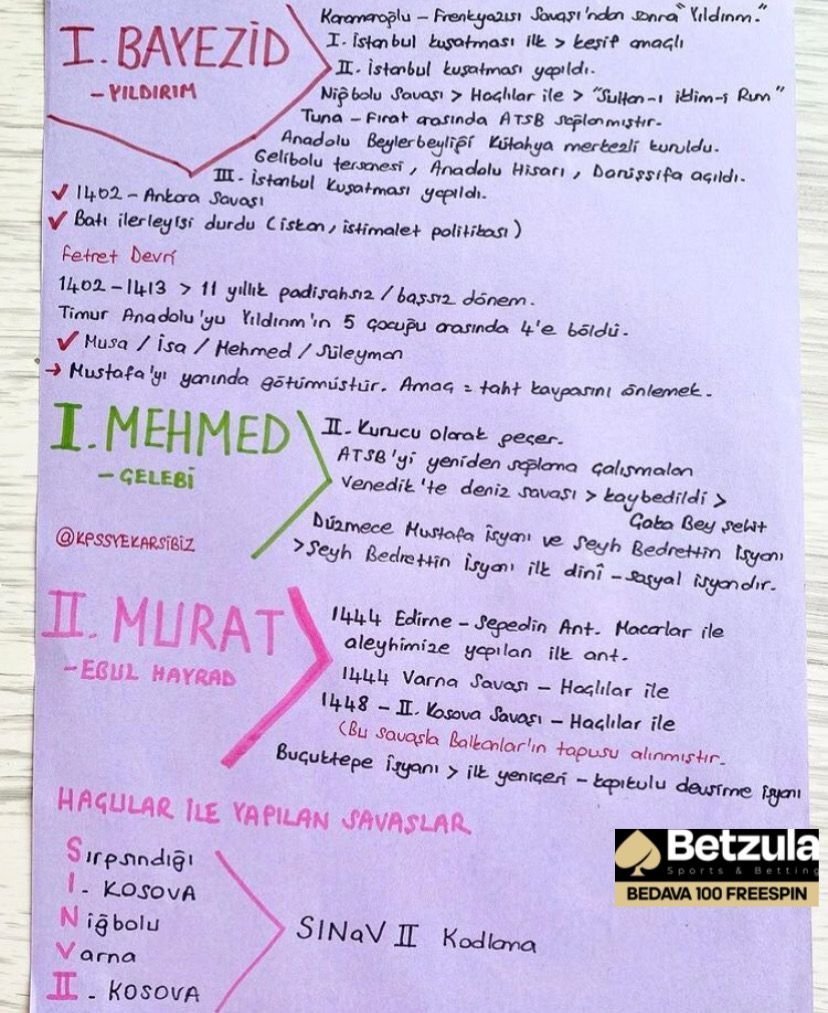 I. BAYEZİD
- YILDIRIM
Karamanoğlu - Frenkyazısı Savaşı'ndan sonra "Yıldırım."
I. İstanbul kuşatması ilk > keşif amaçlı
II. İstanbul kuşatması yapıldı.
Niğbolu Savaşı > Haçlılar ile > "Sultan-ı iklim-i Rum"
Tuna - Fırat arasında ATSB sağlanmıştır.
Anadolu Beylerbeyliği Kütahya merkezli kuruldu.
Gelibolu tersanesi, Anadolu Hisarı, Darüşşifa açıldı.
III. İstanbul Kuşatması yapıldı.
✓ 1402 - Ankara Savaşı
✓ Batı ilerleyişi durdu (iskan, istimalet politikası)
Fetret Devri
1402-1413 > 11 yıllık padişahsız / başsız dönem.
Timur Anadolu'yu Yıldırım'ın 5 çocuğu arasında 4'e böldü.
✓ Musa / İsa / Mehmed / Süleyman
→ Mustafa'yı yanında götürmüştür. Amaç = taht kavgasını önlemek.
I. MEHMED
- ÇELEBİ
II. Kurucu olarak geçer.
ATSB'yi yeniden sağlama çalışmaları
Venedik'te deniz savaşı > kaybedildi >
Çalı Bey şehit
Düzmece Mustafa İsyanı ve Şeyh Bedrettin İsyanı
> Şeyh Bedrettin İsyanı ilk dinî - sosyal isyandır.
@KPSSYEKARSİBİZ
II. MURAT
- EBUL HAYRAD
1444 Edirne - Segedin Ant. Macarlar ile
aleyhimize yapılan ilk ant.
1444 Varna Savaşı - Haçlılar ile
1448 - II. Kosova Savaşı - Haçlılar ile
(Bu savaşla Balkanlar'ın tapusu alınmıştır.
Buçuktepe İsyanı > ilk yeniçeri - kapıkulu devşirme isyanı
HAÇLILAR İLE YAPILAN SAVAŞLAR
Sırpsındığı
I. KOSOVA
Niğbolu
Varna
II. KOSOVA
SINaV II Kodlama
Betzula
Sports & Betting
BEDAVA 100 FREESPIN